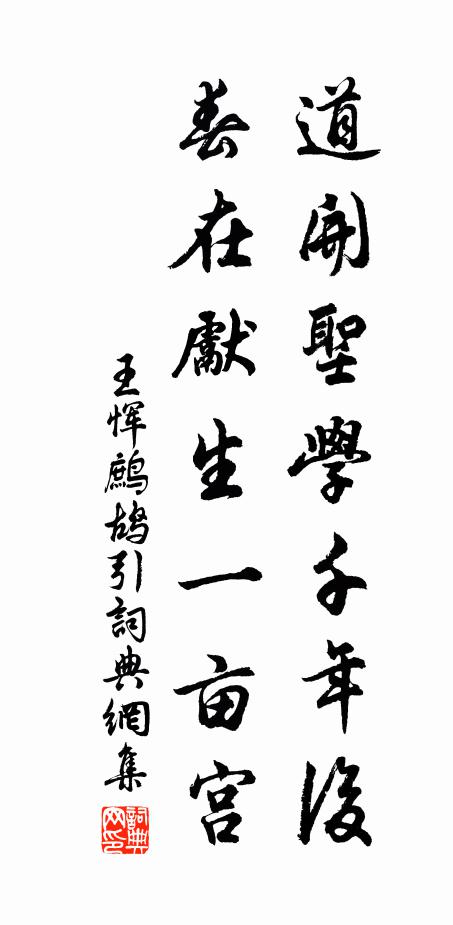 道開聖學千年後
春在獻生一亩宮
王惲鷓鴣引詞典網集
詞典网印